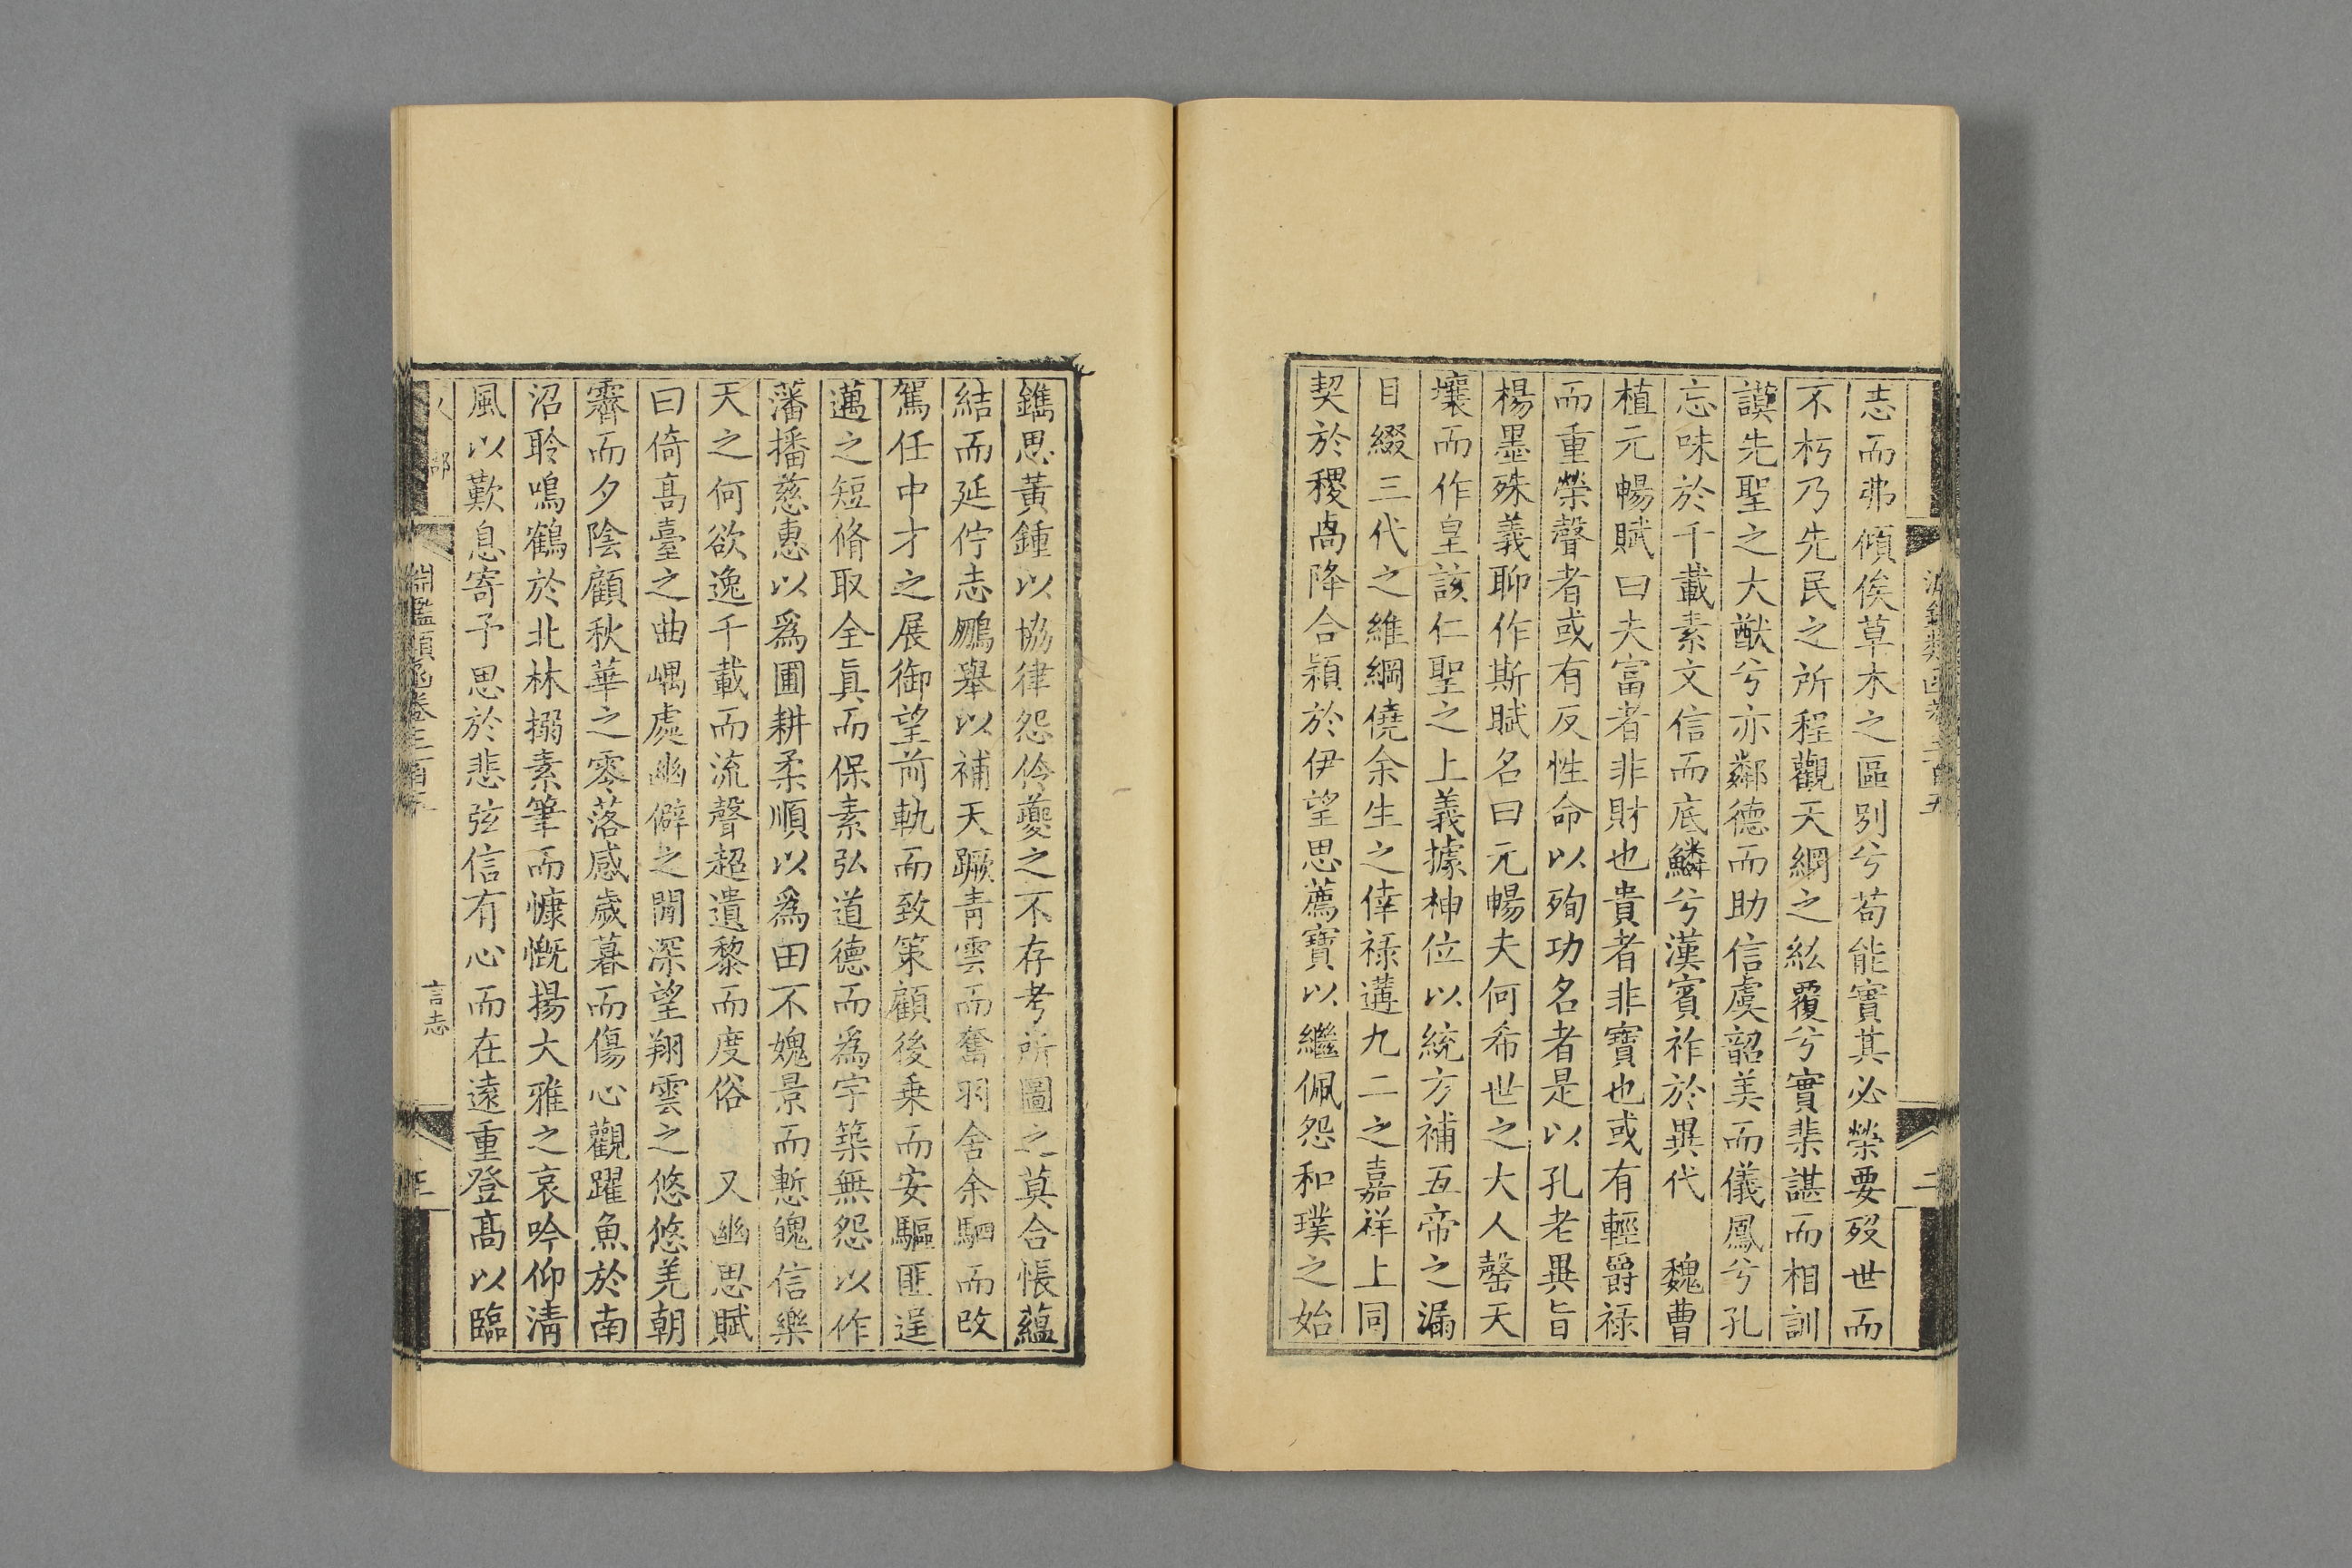 志而弗傾俟草木之區別兮苟能實其必榮要歿世而
不朽乃先民之所程觀天網之紘覆兮實棐諶而相訓
謨先聖之大猷兮亦鄰德而助信虞韶美而儀鳳兮孔
忘味於千載素文信而底麟兮漢賓祚於異代 魏曹
植元暢賦曰夫富者非財也貴者非寶也或有輕爵祿
而重榮聲者或有反性命以殉功名者是以孔老異旨
楊墨殊義聊作斯賦名曰元暢夫何希世之大人罄天
壤而作皇該仁聖之上義據神位以統方補五帝之漏
目綴三代之維綱僥余生之倖祿遘九二之嘉祥上同
契於稷卨降合潁於伊望思薦寶以繼佩怨和璞之始
鐫思黃鍾以協律怨伶夔之不存考所圖之莫合悵蘊
結而延佇志鵬舉以補天蹶青雲而奮羽舍余駟而改
駕任中才之展御望前軌而致策顧後乗而安驅匪逞
邁之短脩取全眞而保素弘道德而爲宇築無怨以作
藩播慈惠以爲圃耕柔順以爲田不媿景而慙魄信樂
天之何欲逸千載而流聲超遺黎而度俗 又幽思賦
曰倚高臺之曲嵎處幽僻之閒深望翔雲之悠悠羌朝
霽而夕陰顧秋華之零落感歲暮而傷心觀躍魚於南
沼聆鳴鶴於北林搦素筆而慷慨揚大雅之哀吟仰清
風以歎息寄予思於悲弦信有心而在遠重登高以臨
言志